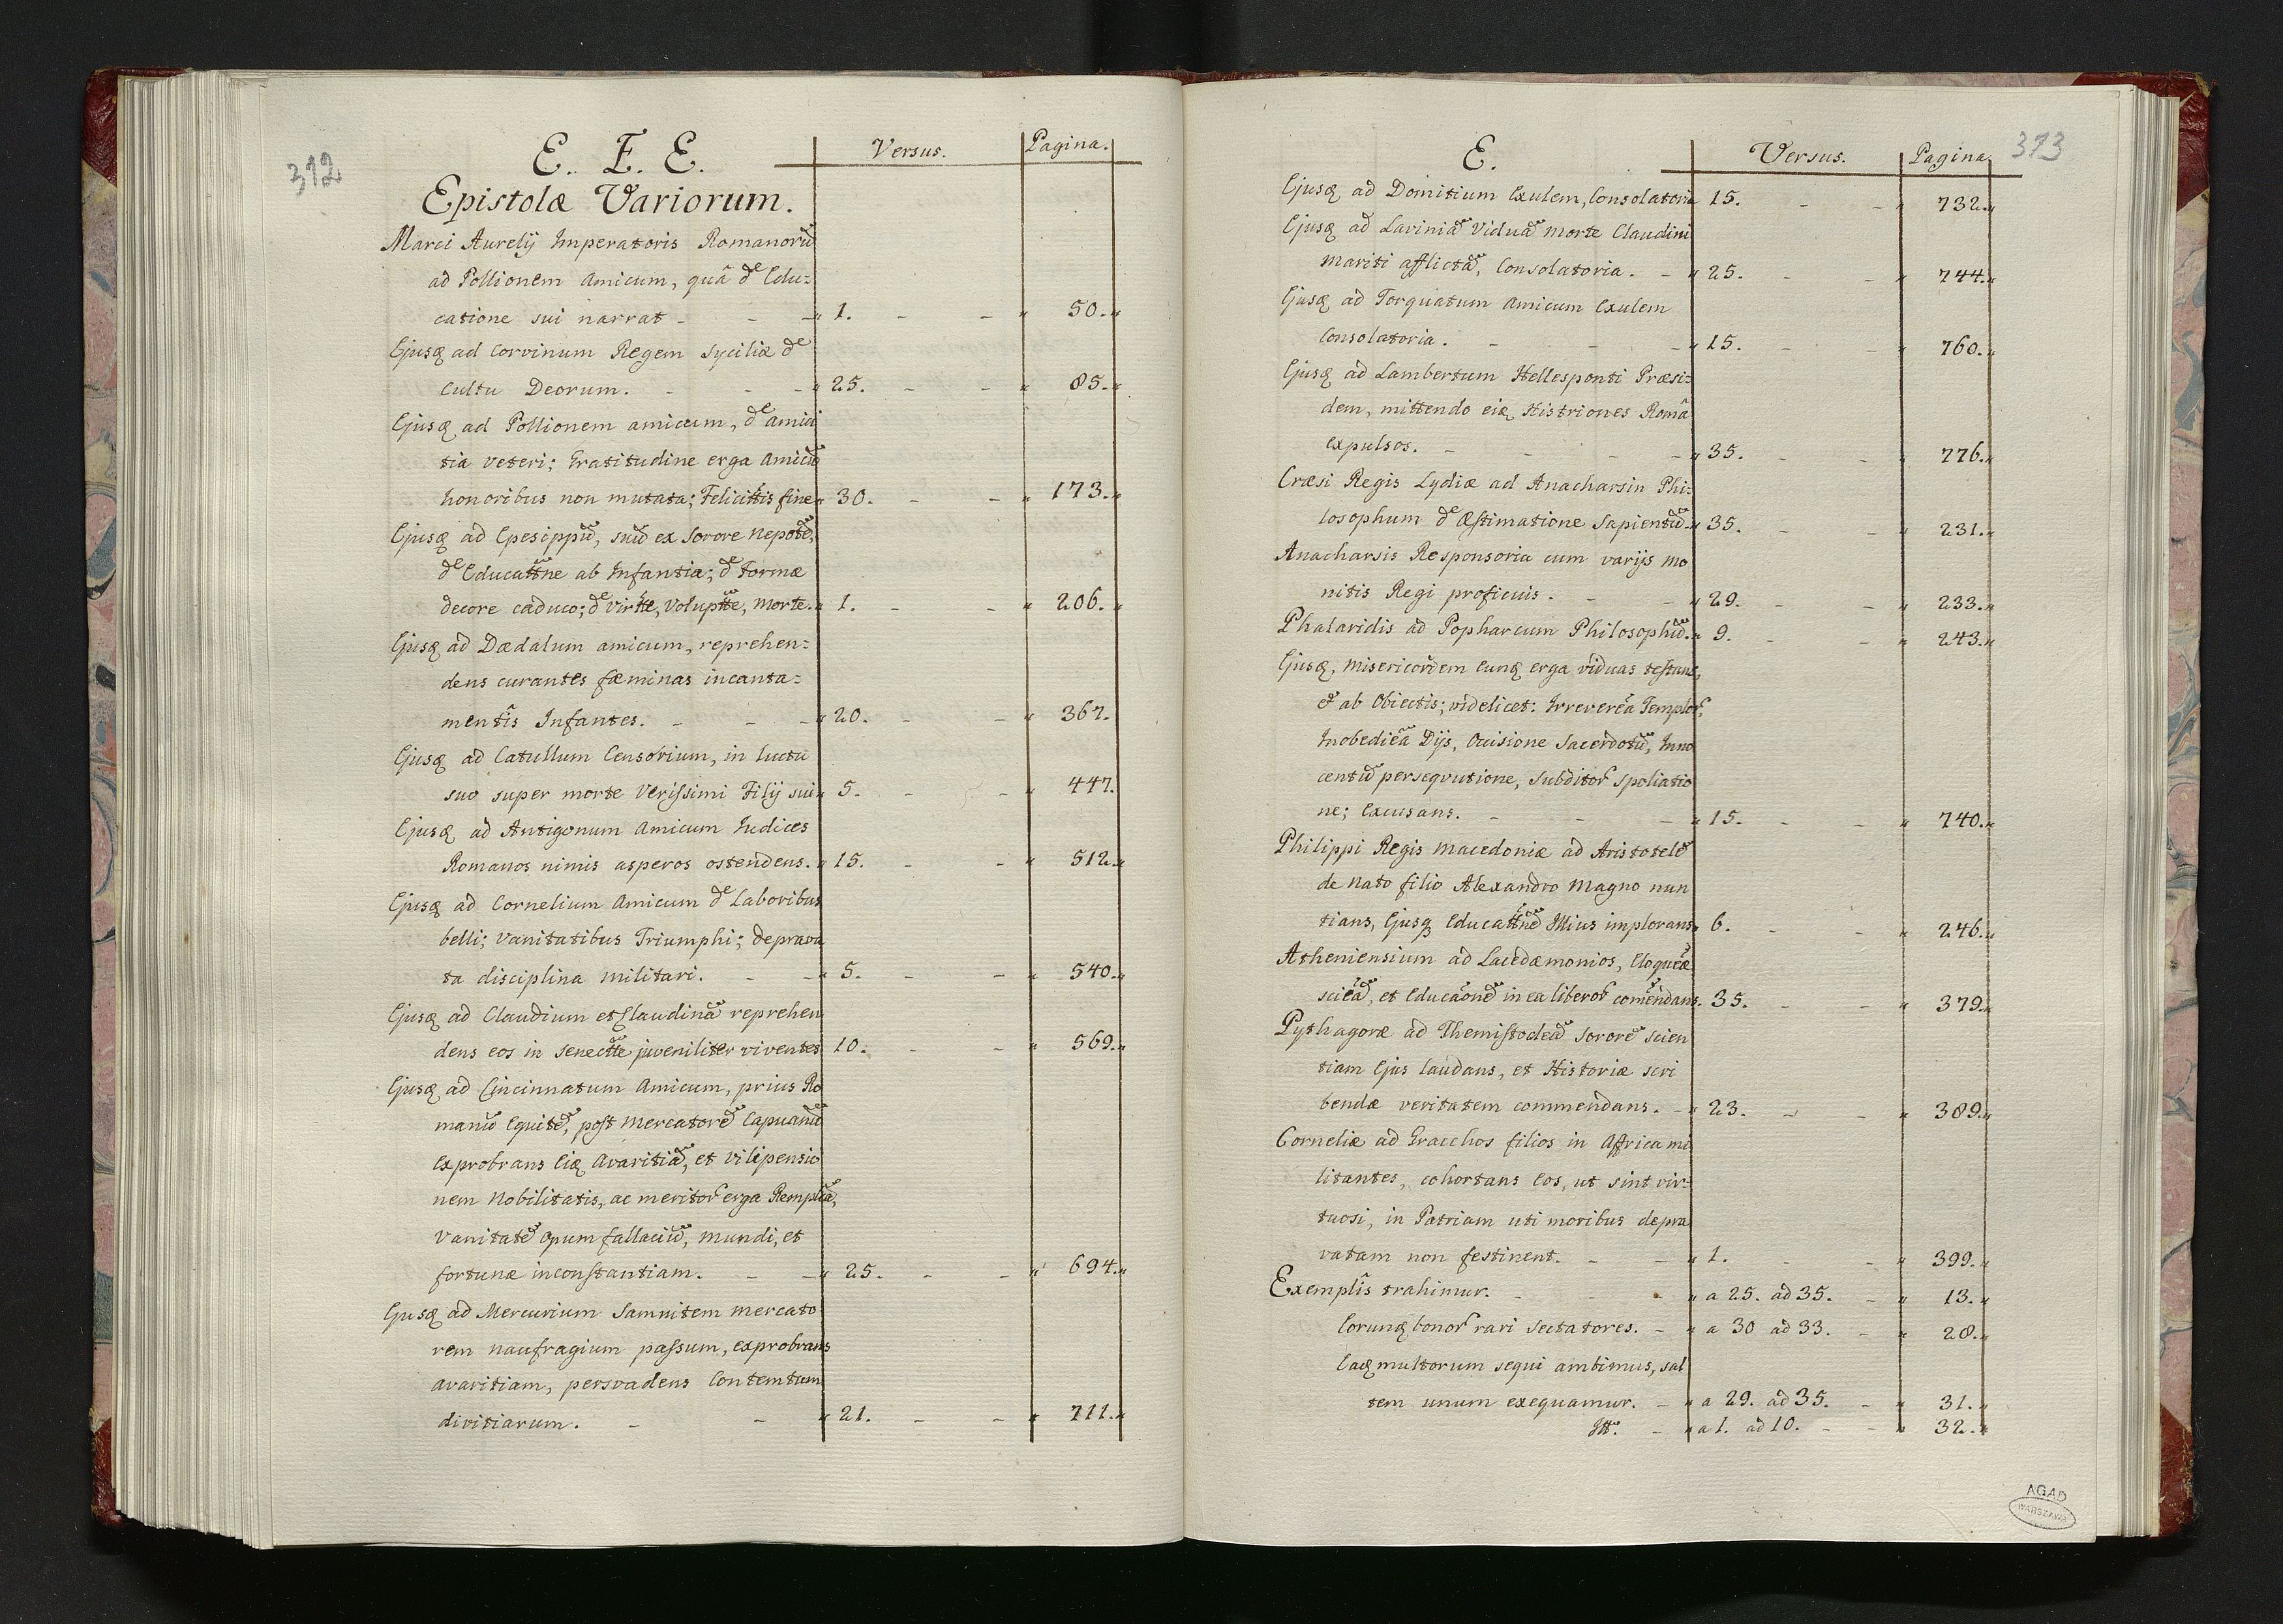 312
E. E. E. Versus. Pagina.
Epistolæ Variorum.
Marci Aurelij Imperatoris Romanorũ
ad Pollionem Amicum, quâ de Edu=
catione sui narrat - - - " 1. - - " 50. "
Ejusq ad Corvinum Regem Syciliæ de
Cultu Deorum. - - - " 25. - - " 85. "
Ejusq ad Pollionem amicum, de amici
tia veteri; Gratitudine erga Amicũ
honoribus non mutata; Felicittis fine " 30. - - " 173. "
Ejusq ad Epesippũ, suũ ex Sorore Nepotẽ,
de Educattne ab Infantia; de Formæ
decore caduco; de virtte, Voluptte, Morte. " 1. - - " 206. "
Ejusq ad Dædalum amicum, reprehen=
dens curantes fæminas incanta=
mentîs Infantes. - - - " 20. - - " 367.
Ejusq ad Catullum Censorium, in luctu
suo super morte Verissimi Filij sui " 5. - - " 447.
Ejusq ad Antigonum Amicum Iudices
Romanos nimis asperos ostendens. " 15. - - " 512. "
Ejusq ad Cornelium Amicum de Laboribus
belli; Vanitatibus Triumphi; deprava
ta disciplina militari. - - " 5. - - " 540. "
Ejusq ad Claudium et Claudinã reprehen
dens eos in senectte juveniliter viventes 10. - - " 569. "
Ejusq ad Cincinnatum Amicum, prius Ro
manũ Equitẽ, post Mercatorẽ Capuanũ
Exprobrans Eiq Avaritiã, et Vilipensio
nem Nobilitatis, ac meritor erga Remplcã,
Vanitatẽ Opum fallaciũ, mundi, et
fortunæ inconstantiam. - - " 25. - - " 694. "
Ejusq ad Mercurium Samnitem mercato
rem naufragium passum, exprobrans
avaritiam, persvadens Contemtum
divitiarum. - - " 21. - - " 711. "
373
E. Versus. Pagina
Ejusq ad Domitium Exulem, Consolatoria 15. - - " 732. "
Ejusq ad Laviniã Viduã morte Claudini
mariti afflictã, Consolatoria. - " 25. - - " 744. "
Ejusq ad Torquatum Amicum Exulem
Consolatoria. - - - " 15. - - " 760. "
Ejusq ad Lambertum Hellesponti Præsi=
dem, mittendo eiq Histriones Româ
expulsos. - - - - " 35. - - " 776. "
Cræsi Regis Lydiæ ad Anacharsin Phi=
losophum de Æstimatione Sapientũ. " 35. - - " 231. "
Anacharsis Responsoria cum varijs mo
nitis Regi proficuis. - - " 29. - - " 233. "
Phalaridis ad Popharcum Philosophũ. " 9. - - " 243. "
Ejusq, misericordem Eunq erga viduas testans,
et ab Obiectis; videlicet: Irreverẽa Templor,
Inobediẽa Dijs, Occisione Sacerdotũ, Inno
centũ perseqvutione, Subditor Spoliatio
ne; Excusans. - - - " 15. - - " 740. "
Philippi Regis Macedoniæ ad Aristotelẽ
de Nato filio Alexandro Magno nun
tians, Ejusq Educattnẽ Illius implorans. 6. - - " 246. "
Atheniensium ad Lacedæmonios, Eloquẽæ
sciẽã, et Educãonẽ in ea liberor comẽndans. 35. - - " 379. "
Pythagoræ ad Themistocleã Sororẽ scien
tiam Ejus laudans, et Historiæ scri
bendæ veritatem commendans. - " 23. - - " 389. "
Corneliæ ad Gracchos filios in Africa mi
litantes, cohortans Eos, ut sint vir=
tuosi, in Patriam uti moribus depra
vatam non festinent. - - " 1. - - " 399. "
Exemplîs trahimur. - - - " a 25. ad 35. - " 13. "
Eorunq bonor rari Sectatores. - " a 30 ad 33. - " 28. "
Eaq multorum sequi ambimus, sal
tem unum exequamur. - " a 29. ad 35. - " 31. "
Itt. - " a 1. ad 10. - - " 32. "
AGAD
WARSZAWA